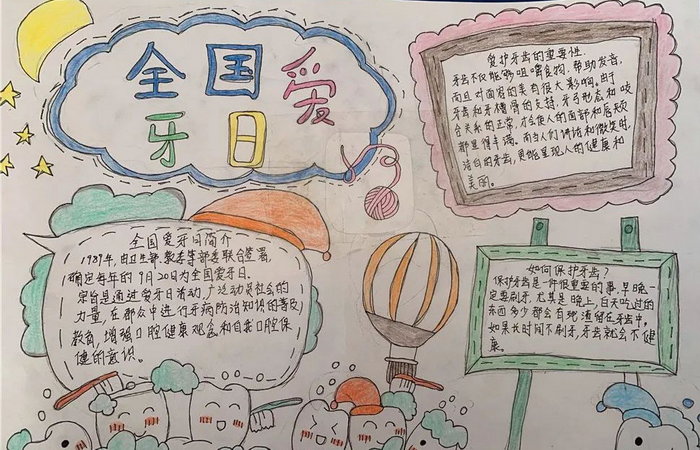 全国爱
牙日
爱护牙齿的重要性
牙齿不仅能够咀嚼食物、帮助发音,
而且对面容的美有很大影响。由于
牙齿和牙槽骨的支持,牙弓形态和咬
合关系的正常,才会使人的面部和唇颊
都显得丰满。而当人们讲话和微笑时,
洁白的牙齿,更能显现人的健康和
美丽。
全国爱牙日简介
1989年,由卫生部、教委等部委联合签署,
确定每年的9月20日为全国爱牙日。
宗旨是通过爱牙日活动,广泛动员社会的
力量,在群众中进行牙病防治知识的普及
教育,增强口腔健康观念和自我口腔保
健的意识。
如何保护牙齿?
保护牙齿是一件很重要的事,早晚一
定要刷牙,尤其是晚上,白天吃过的
东西多少都会有残渣留在牙齿中,
如果长时间不刷牙,牙齿就会不健
康。